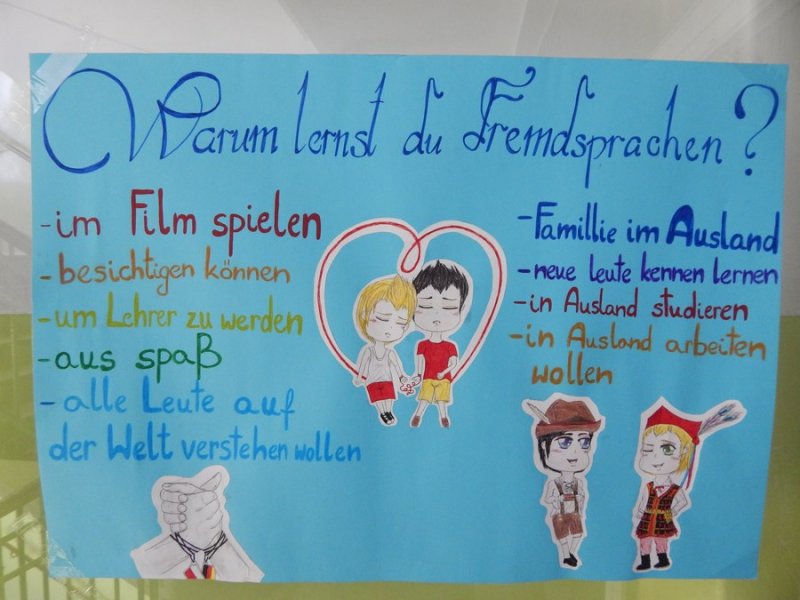 Warum lernst du Fremdsprachen?
- im Film spielen
- besichtigen können
- um Lehrer zu werden
- aus spaß
- alle Leute auf
der Welt verstehen wollen
- Famillie im Ausland
- neue leute kennen lernen
- in Ausland studieren
- in Ausland arbeiten
wollen